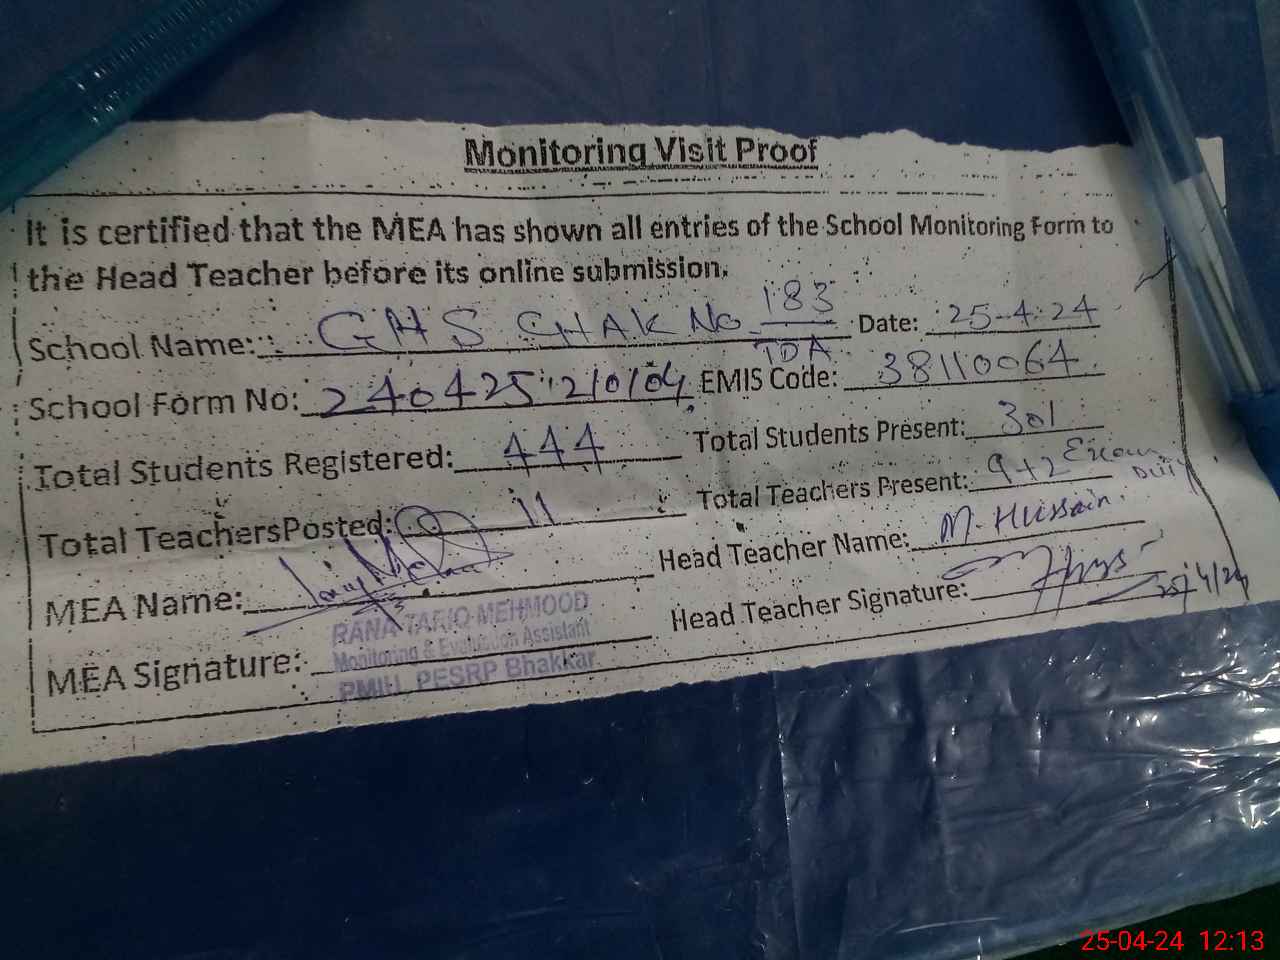 Monitoring Visit Proof
It is certified that the MEA has shown all entries of the School Monitoring Form to
the Head Teacher before its online submission.
School Name: GHS CHAK No 183/TDA Date: 25-4-24
School Form No: 240425 EMIS Code: 38110064
Total Students Registered: 444 Total Students Present: 301
Total Teachers Posted: 11 Total Teachers Present: 9+2
MEA Name: Head Teacher Name: M. Hussain
MEA Signature: Head Teacher Signature: 25/4/24
RANA TARIQ MEHMOOD
Monitoring & Evaluation Assistant
PMIU, PESRP Bhakkar
25-04-24 12:13